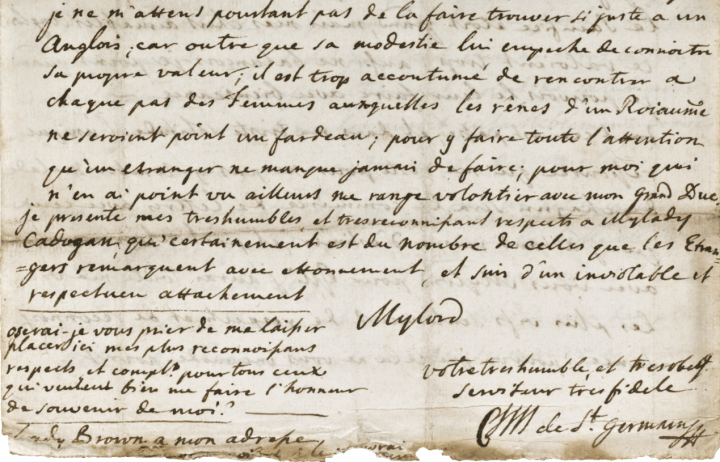 je ne m'attens pourtant pas de la faire trouver si juste a un
Anglois; car outre que sa modestie lui empeche de connoitre
sa propre valeur; il est trop accoutumé de rencontrer a
chaque pas des Femmes aunquelles les rênes d'un Roiaume
ne seroient point un fardeau; pour y faire toute l'attention
qu'un etranger ne manque jamais de faire; pour moi qui
n'en ai point vu ailleurs me range volontier avec mon Grand Duc.
je presente mes treshumbles et tresreconnissant respects a Mylady
Cadogan qui certainement est du nombre de celles que les Etran-
=gers remarquent avec ettonnement, et suis d'un inviolable et
respectueu attachement
Mylord
oserai-je vous prier de me laisser
placer ici mes plus reconnoissans
respects et complts pour tous ceux
qui veulent bien me faire l'honneur
de souvenir de moi?
votre treshumble et tresobeisst
serviteur tresfidele
de St. Germain
Lady Brown a mon adresse